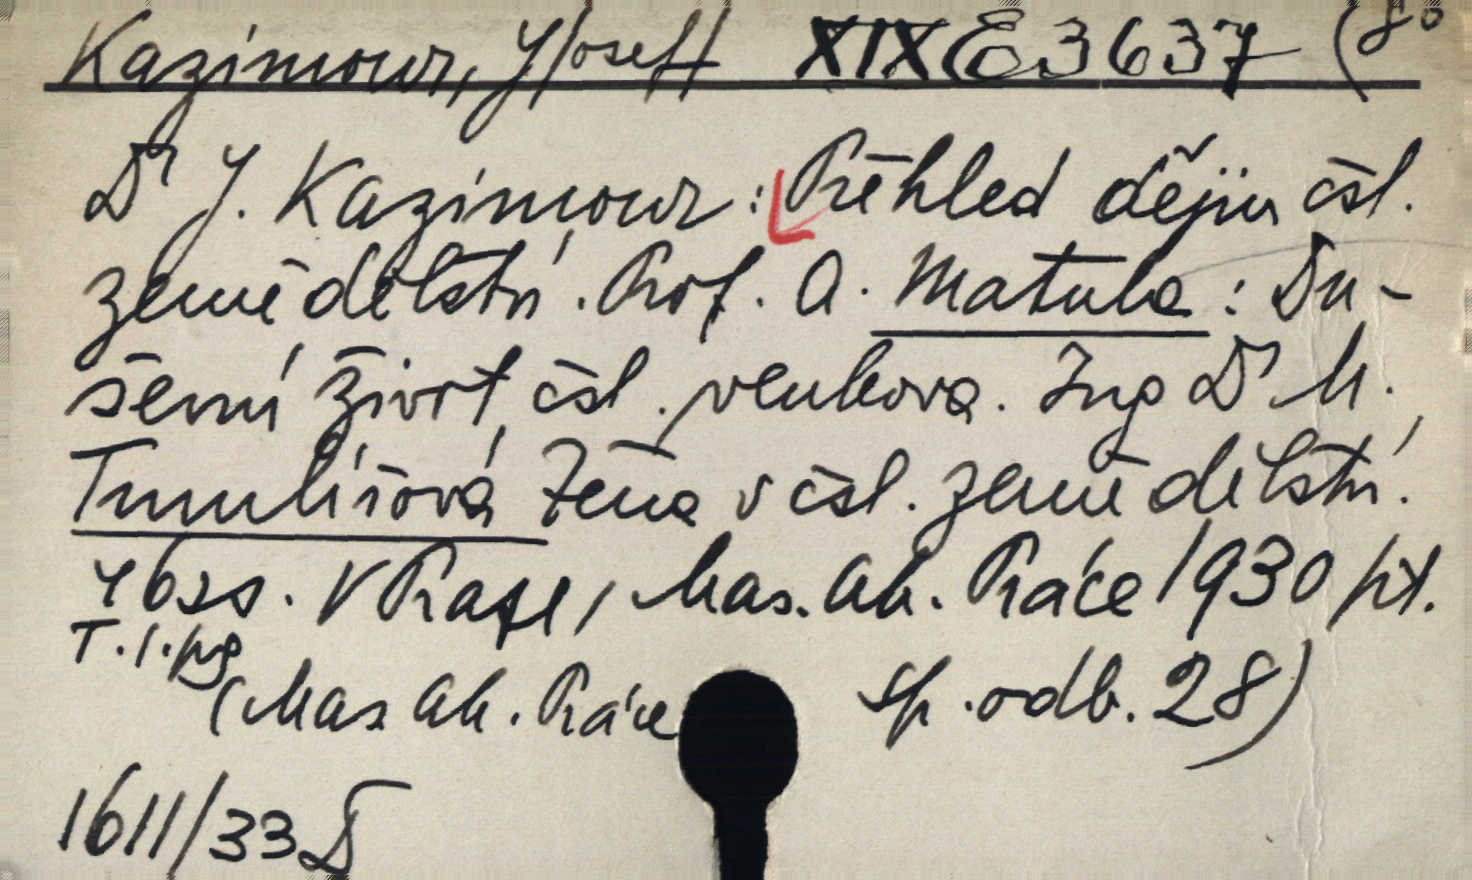 Kazimour, J/osef/ XIX E 3637 (8°
Dr J. Kazimour: Přehled dějin čsl.
zemědělství. Prof. A. Matula: Du-
ševní život čsl. venkova. Ing Dr M.
Tumlířová Žena v čsl. zemědělství.
46 ss. V Praze, Mas. Ak. Práce 1930 př.
T. I. pg
(Mas Ak. Práce sp. odb. 28)
1611/33 D